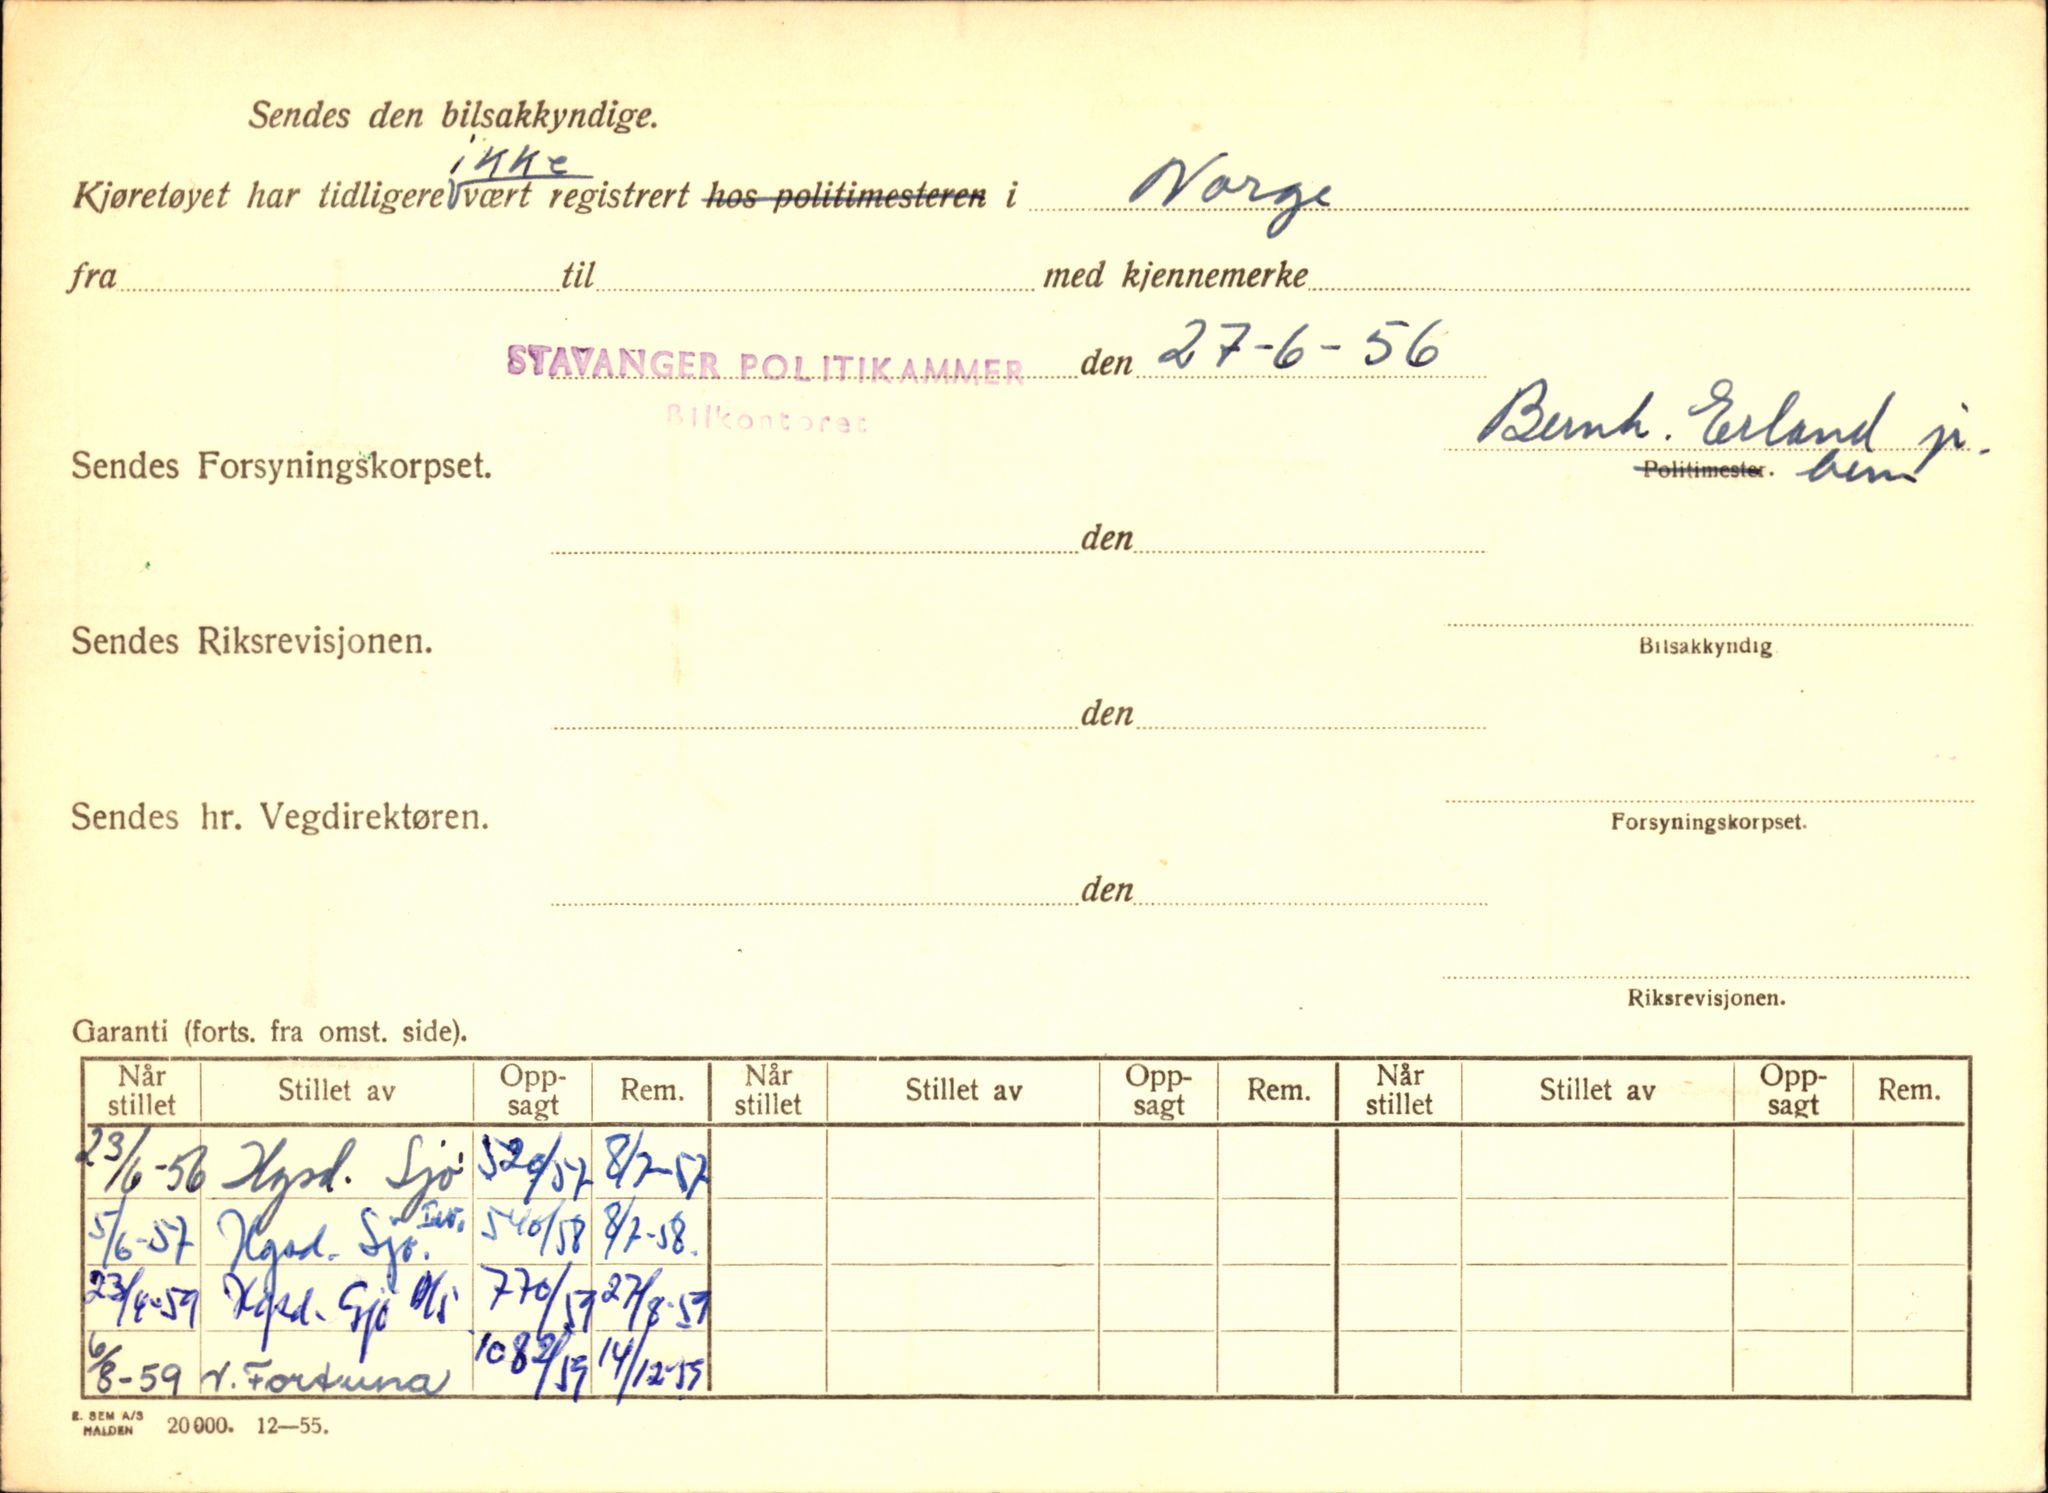 Sendes den bilsakkyndige.
ikke
Kjøretøyet har tidligere vært registrert hos politimesteren i Norge
fra til med kjennemerke
STAVANGER POLITIKAMMER den 27-6-56
Bilkontoret
Bernh. Erland jr.
Sendes Forsyningskorpset.
Politimester. bem
den
Sendes Riksrevisjonen.
Bilsakkyndig
den
Sendes hr. Vegdirektøren.
Forsyningskorpset.
den
Riksrevisjonen.
Garanti (forts. fra omst. side).
Når stillet Stillet av Opp-sagt Rem. Når stillet Stillet av Opp-sagt Rem. Når stillet Stillet av Opp-sagt Rem.
23/6-56 Hgsd. Sjø 520/57 8/7-57
5/6-57 Hgsd. Sjø. 540/58 8/7-58.
23/4-59 Hgsd. Sjø A/S 770/59 27/8-59
6/8-59 v. Fortuna 1082/59 14/12-59
E. SEM A/S
HALDEN 20000. 12—55.